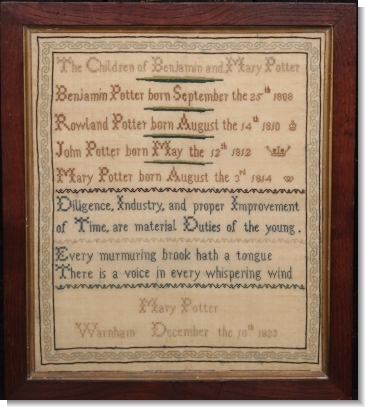 The Children of Benjamin and Mary Potter
Benjamin Potter born September the 25th 1808
Rowland Potter born August the 14th 1810
John Potter born May the 12th 1812
Mary Potter born August the 3rd 1814
Diligence, Industry, and proper Improvement
of Time, are material Duties of the young.
Every murmuring brook hath a tongue
There is a voice in every whispering wind
Mary Potter
Warnham December the 10th 1823